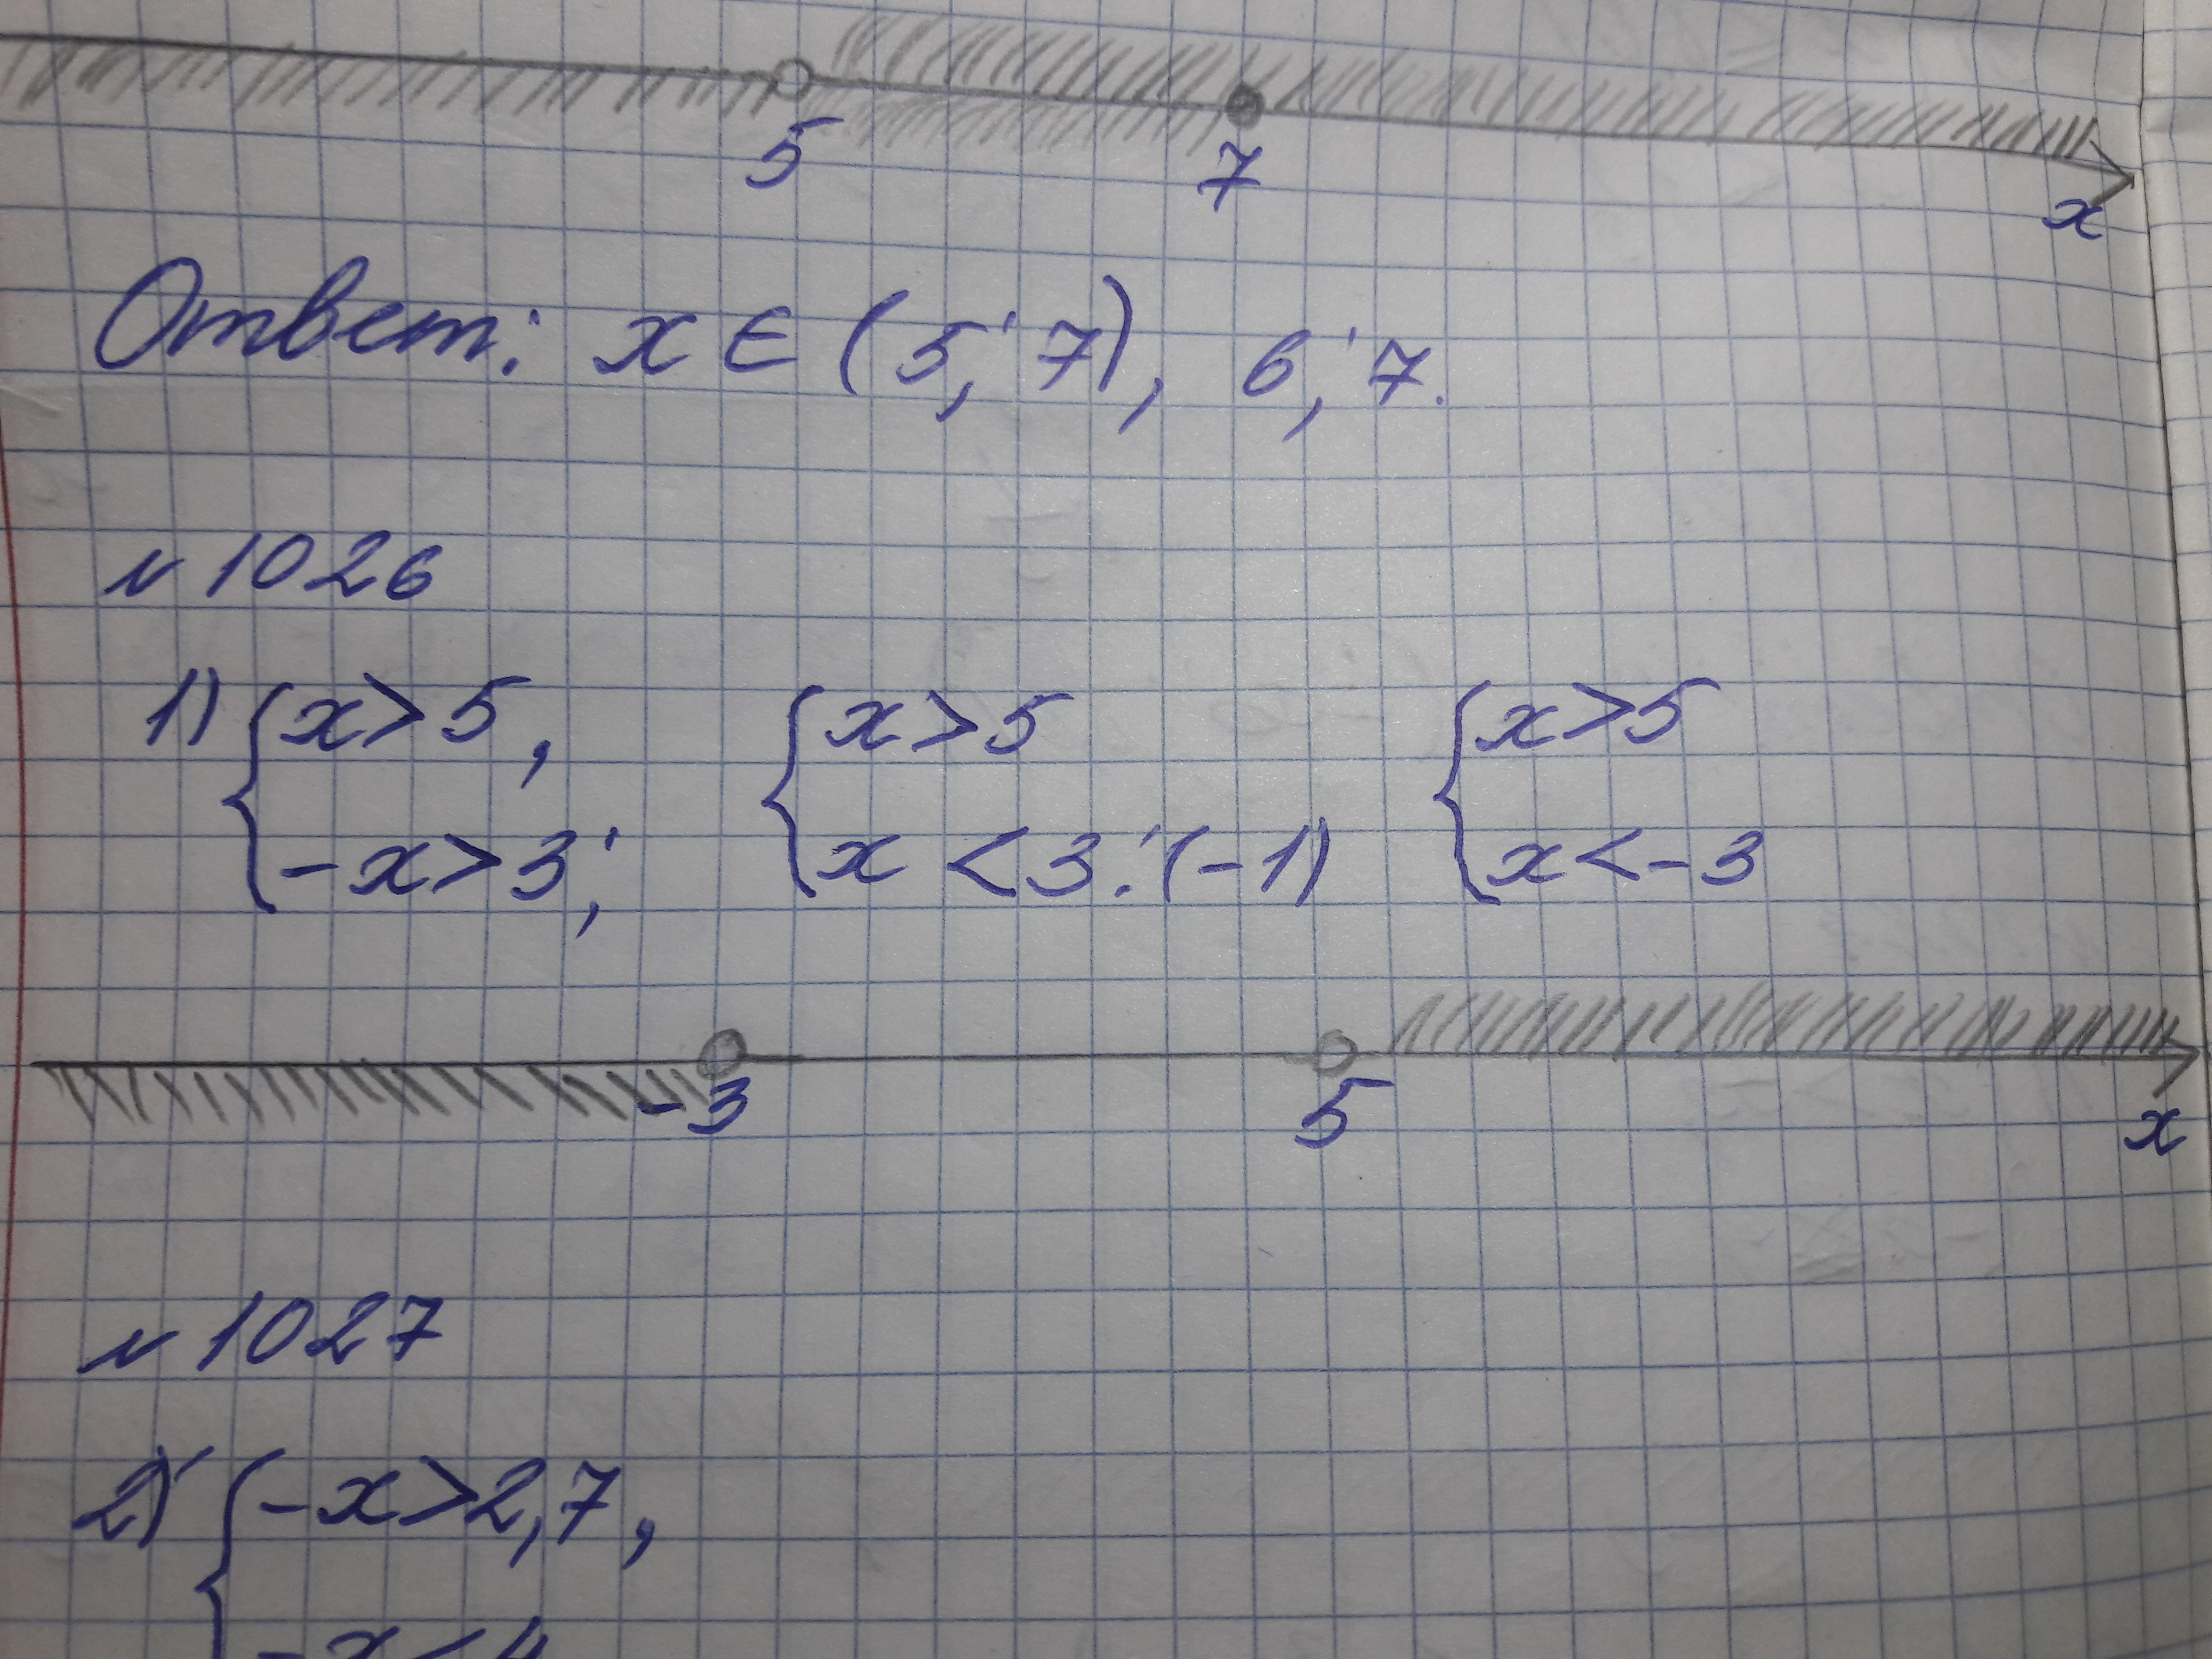 5 7 x
Ответ: x ∈ (5; 7), 6; 7.
№ 1026
1) { x > 5, { x > 5 { x > 5
-x > 3; x < 3:(-1) x < -3
-3 5 x
№ 1027
2) { -x > 2,7,
-x < 4